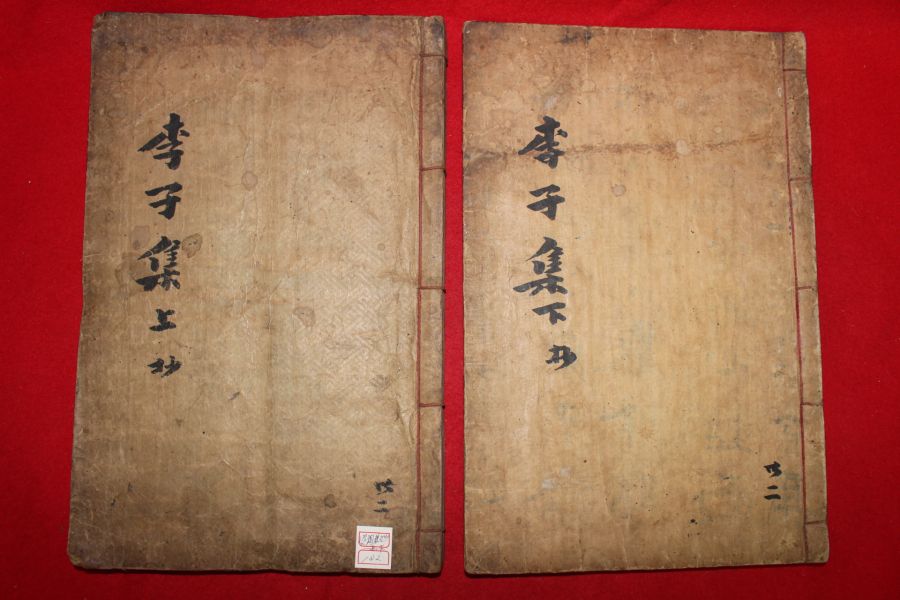 李子集上抄
共二
李子集下抄
共二